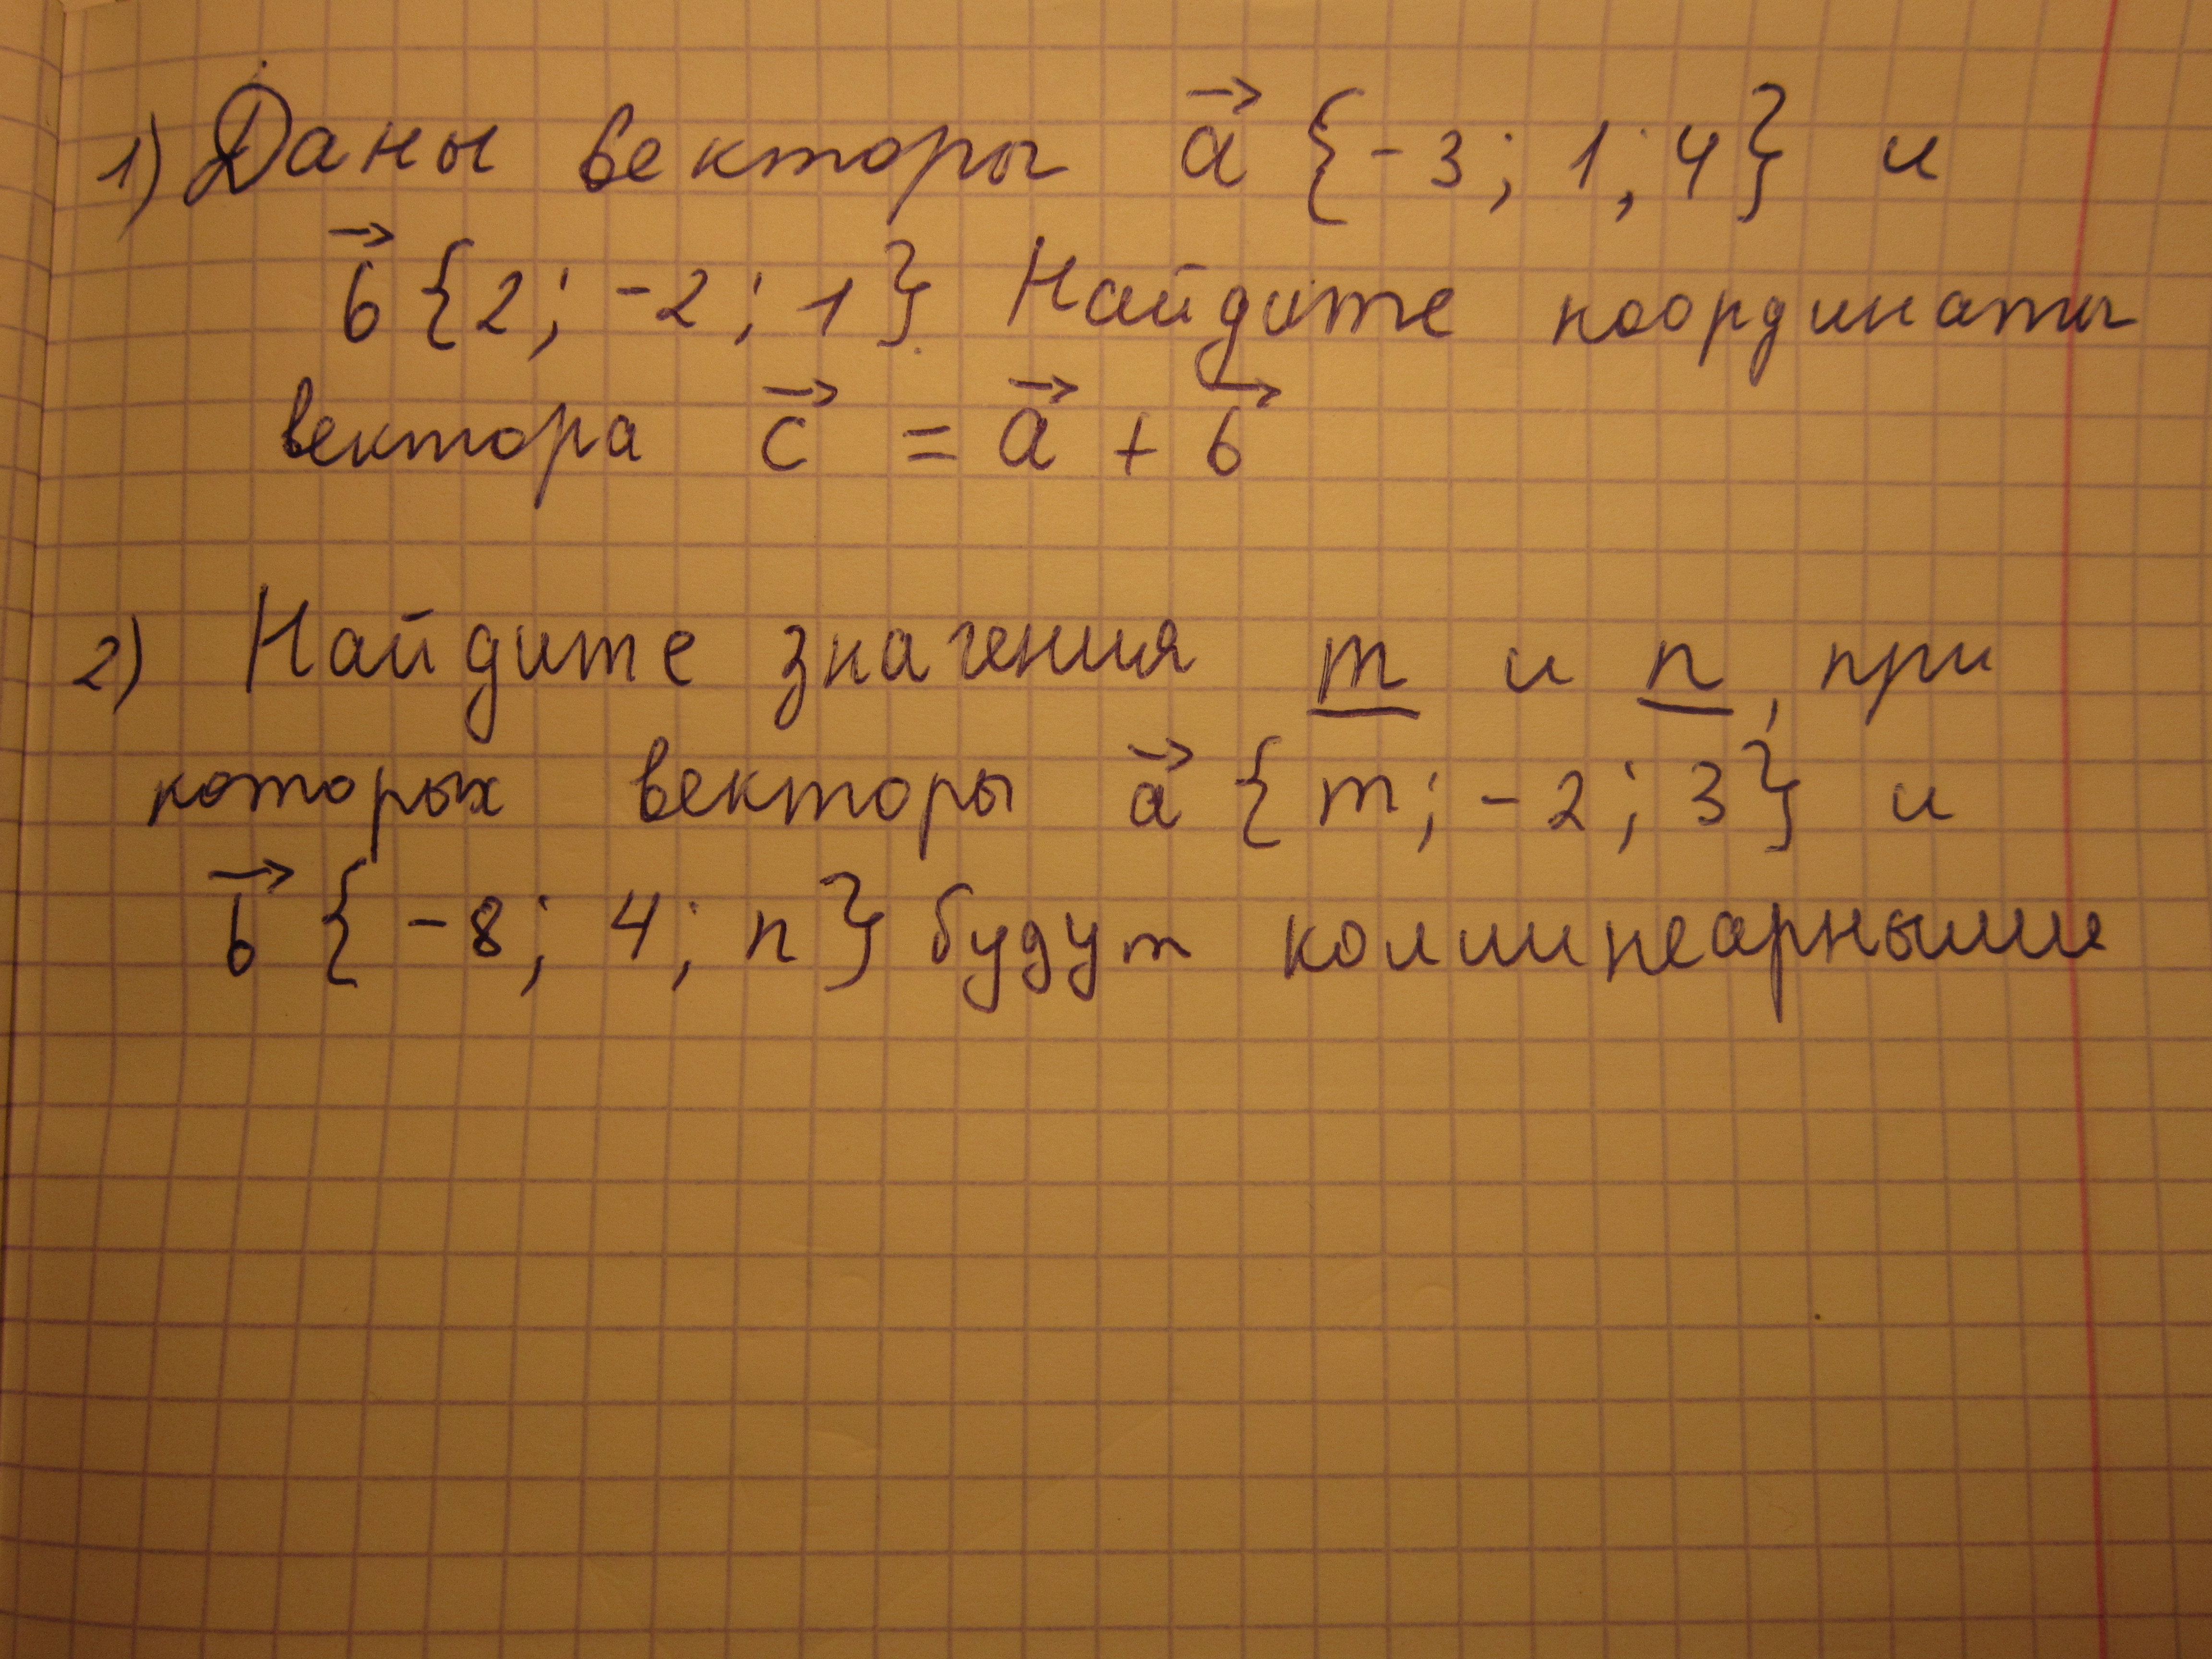 1) Даны векторы a⃗ {-3; 1; 4} и
b⃗ {2; -2; 1} Найдите координаты
вектора c⃗ = a⃗ + b⃗
2) Найдите значения m и n, при
которых векторы a⃗ {m; -2; 3} и
b⃗ {-8; 4; n} будут коллинеарными